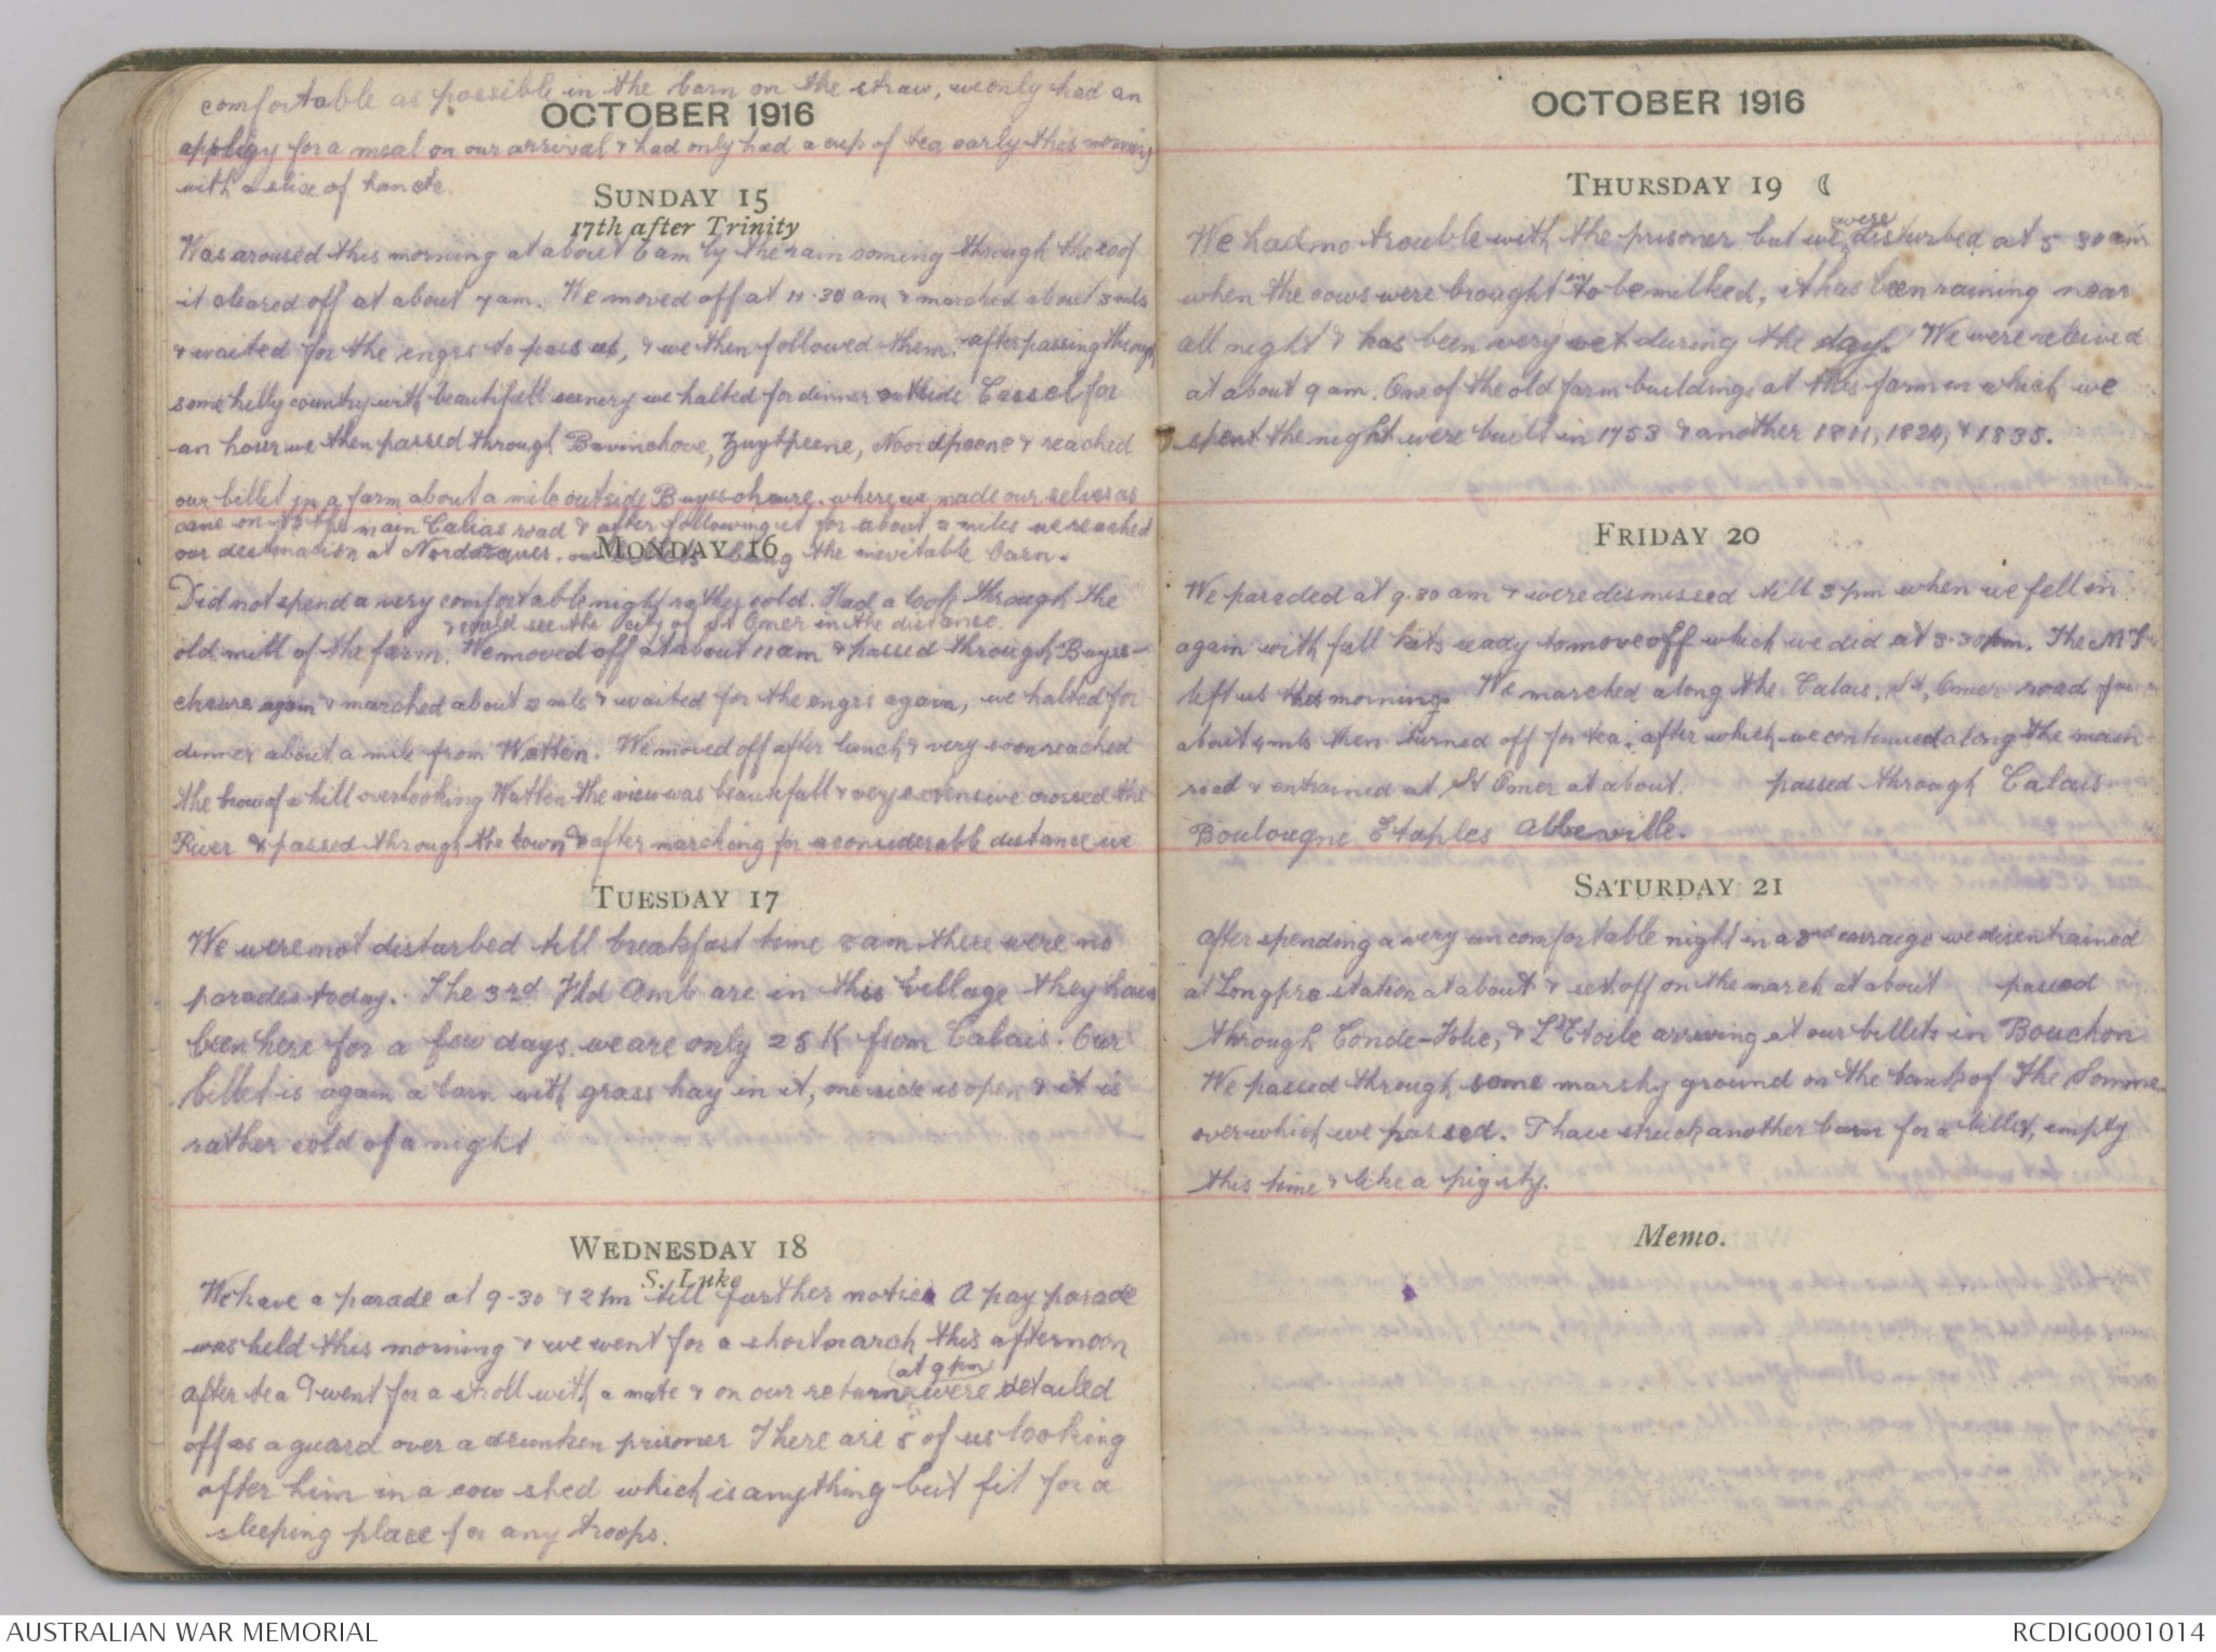 comfortable as possible in the barn on the straw, we only had an
OCTOBER 1916
apoligy for a meal on our arrival & had only had a cup of tea early this morning
with a slice of ham etc.
SUNDAY 15
17th after Trinity
Was aroused this morning at about 6 am by the rain coming through the roof
it cleared off at about 7 am. We moved off at 11.30 am & marched about 3 mls
& waited for the engrs to pass us, & we then followed them. after passing through
some hilly country with beautifull scenery we halted for dinner outside Cassel for
an hour we then passed through Bavinchove, Zuytpeene, Noordpeene & reached
our billet in a farm about a mile outside Buysscheure. where we made our selves as
came on to the main Calias road & after following it for about 2 miles we reached
our destination at Nordasques. our billets being the inevitable barn.
MONDAY 16
Did not spend a very comfortable night rather cold. Had a look through the
& could see the city of St Omer in the distance.
old mill of the farm. We moved off at about 11 am & passed through Buyss-
cheure again & marched about 2 mls & waited for the engrs again, we halted for
dinner about a mile from Watten. We moved off after lunch & very soon reached
the brow of a hill overlooking Watten the view was beautifull & very extensive crossed the
River & passed through the town & after marching for a considerable distance we
TUESDAY 17
We were not disturbed till breakfast time 8 am there were no
parades today. The 3rd Fld Amb are in this village they have
been here for a few days. we are only 25 K from Calais. Our
billet is again a barn with grass hay in it, one side is open & it is
rather cold of a night
WEDNESDAY 18
S. Luke
We have a parade at 9-30 & 2 pm till further notice A pay parade
was held this morning & we went for a short march this afternoon
(at 9 pm)
after tea I went for a stroll with a mate & on our return were detailed
off as a guard over a drunken prisoner There are 5 of us looking
after him in a cow shed which is anything but fit for a
sleeping place for any troops.
OCTOBER 1916
THURSDAY 19
were
We had no trouble with the prisoner but we disturbed at 5 30 am
in
when the cows were brought to be milked, it has been raining near
all night & has been very wet during the day. We were releived
at about 9 am. One of the old farm buildings at this farm in which we
spent the night were built in 1753 & another 1811, 1824, & 1835.
FRIDAY 20
We paraded at 9.30 am & were dismissed till 3 pm when we fell in
again with full kits ready to move off which we did at 3.30 pm. The M T
left us this morning. We marched along the Calais, St, Omer road for
about 4 mls then turned off for tea. after which we continued along the main
road & entrained at St Omer at about. passed through Calais
Boulougne Etaples Abbeville.
SATURDAY 21
After spending a very uncomfortable night in a 3rd carraige we disentrained
at Longpre station at about & set off on the march at about passed
through Conde-Folie, & L'Etoile arriving at our billets in Bouchon
We passed through some marshy ground on the bank of The Somme
over which we passed. I have struck another barn for a billet, empty
this time & like a pig sty.
Memo.
AUSTRALIAN WAR MEMORIAL
RCDIG0001014